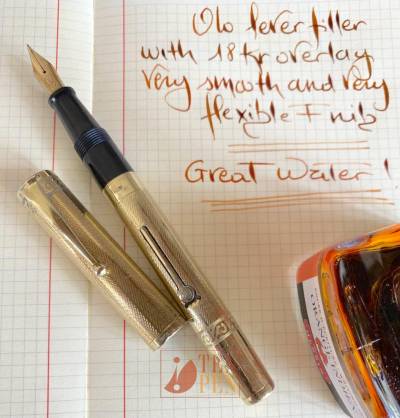 Old lever filler
with 18 Kr overlay
very smooth and very
flexible F nib
Great writer!
THE
PEN